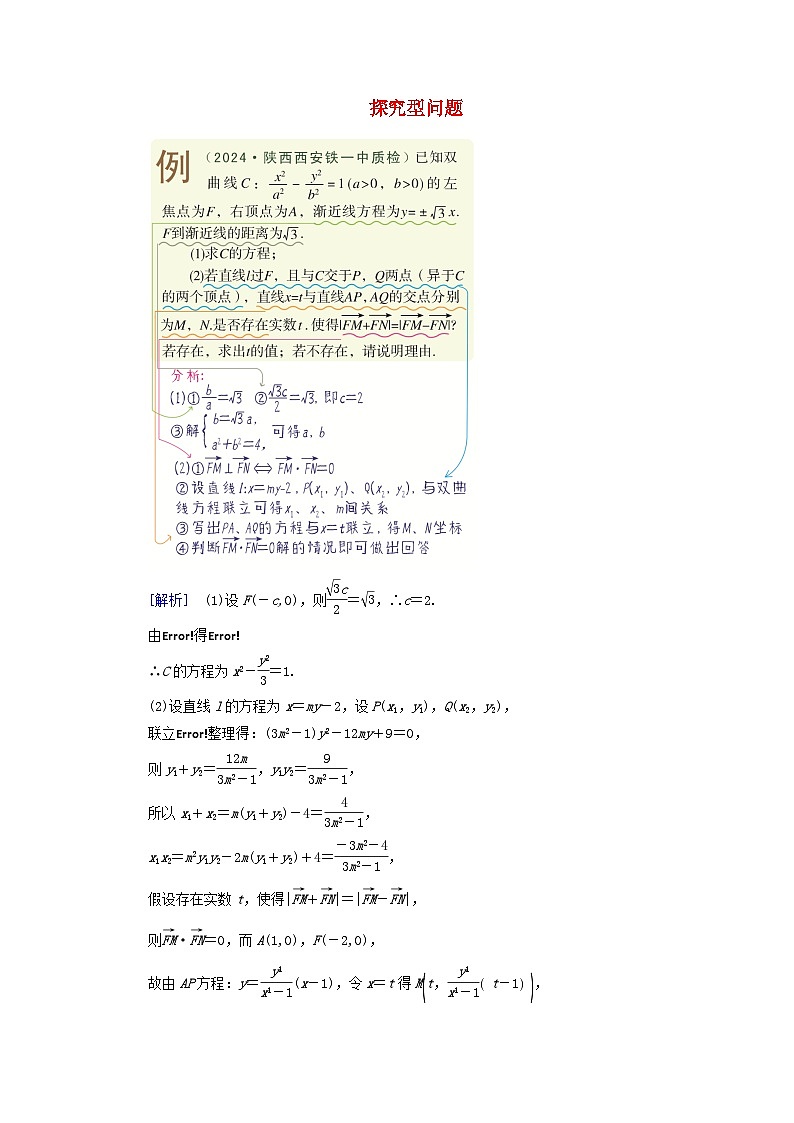 探究型问题
例 (2024·陕西西安铁一中质检)已知双
曲线C：x²/a²－y²/b²=1(a>0，b>0)的左
焦点为F，右顶点为A，渐近线方程为y=±√3x.
F到渐近线的距离为√3.
(1)求C的方程；
(2)若直线l过F，且与C交于P，Q两点（异于C
的两个顶点），直线x=t与直线AP,AQ的交点分别
为M，N.是否存在实数t.使得|FM+FN|=|FM−FN|?
若存在，求出t的值；若不存在，请说明理由.
分析：
(1)①b/a=√3 ②√3c/2=√3，即c=2
③解{b=√3a，a²+b²=4， 可得a，b
(2)①FM⊥FN⟺FM·FN=0
②设直线l:x=my-2，P(x₁，y₁)、Q(x₂，y₂)，与双曲
线方程联立可得x₁、x₂、m间关系
③写出PA、AQ的方程与x=t联立，得M、N坐标
④判断FM·FN=0解的情况即可做出回答
[解析] (1)设F(－c,0)，则√3c/2=√3，∴c＝2.
由Error!得Error!
∴C的方程为x²－y²/3=1.
(2)设直线l的方程为x＝my－2，设P(x₁，y₁)，Q(x₂，y₂)，
联立Error!整理得：(3m²－1)y²－12my＋9＝0，
则y₁＋y₂＝12m/3m²－1，y₁y₂＝9/3m²－1，
所以x₁＋x₂＝m(y₁＋y₂)－4＝4/3m²－1，
x₁x₂＝m²y₁y₂－2m(y₁＋y₂)＋4＝－3m²－4/3m²－1，
假设存在实数t，使得|FM＋FN|＝|FM－FN|，
则FM·FN＝0，而A(1,0)，F(－2,0)，
故由AP方程：y＝y¹/x¹－1(x－1)，令x＝t得M(t，y¹/x¹－1( t－1) )，